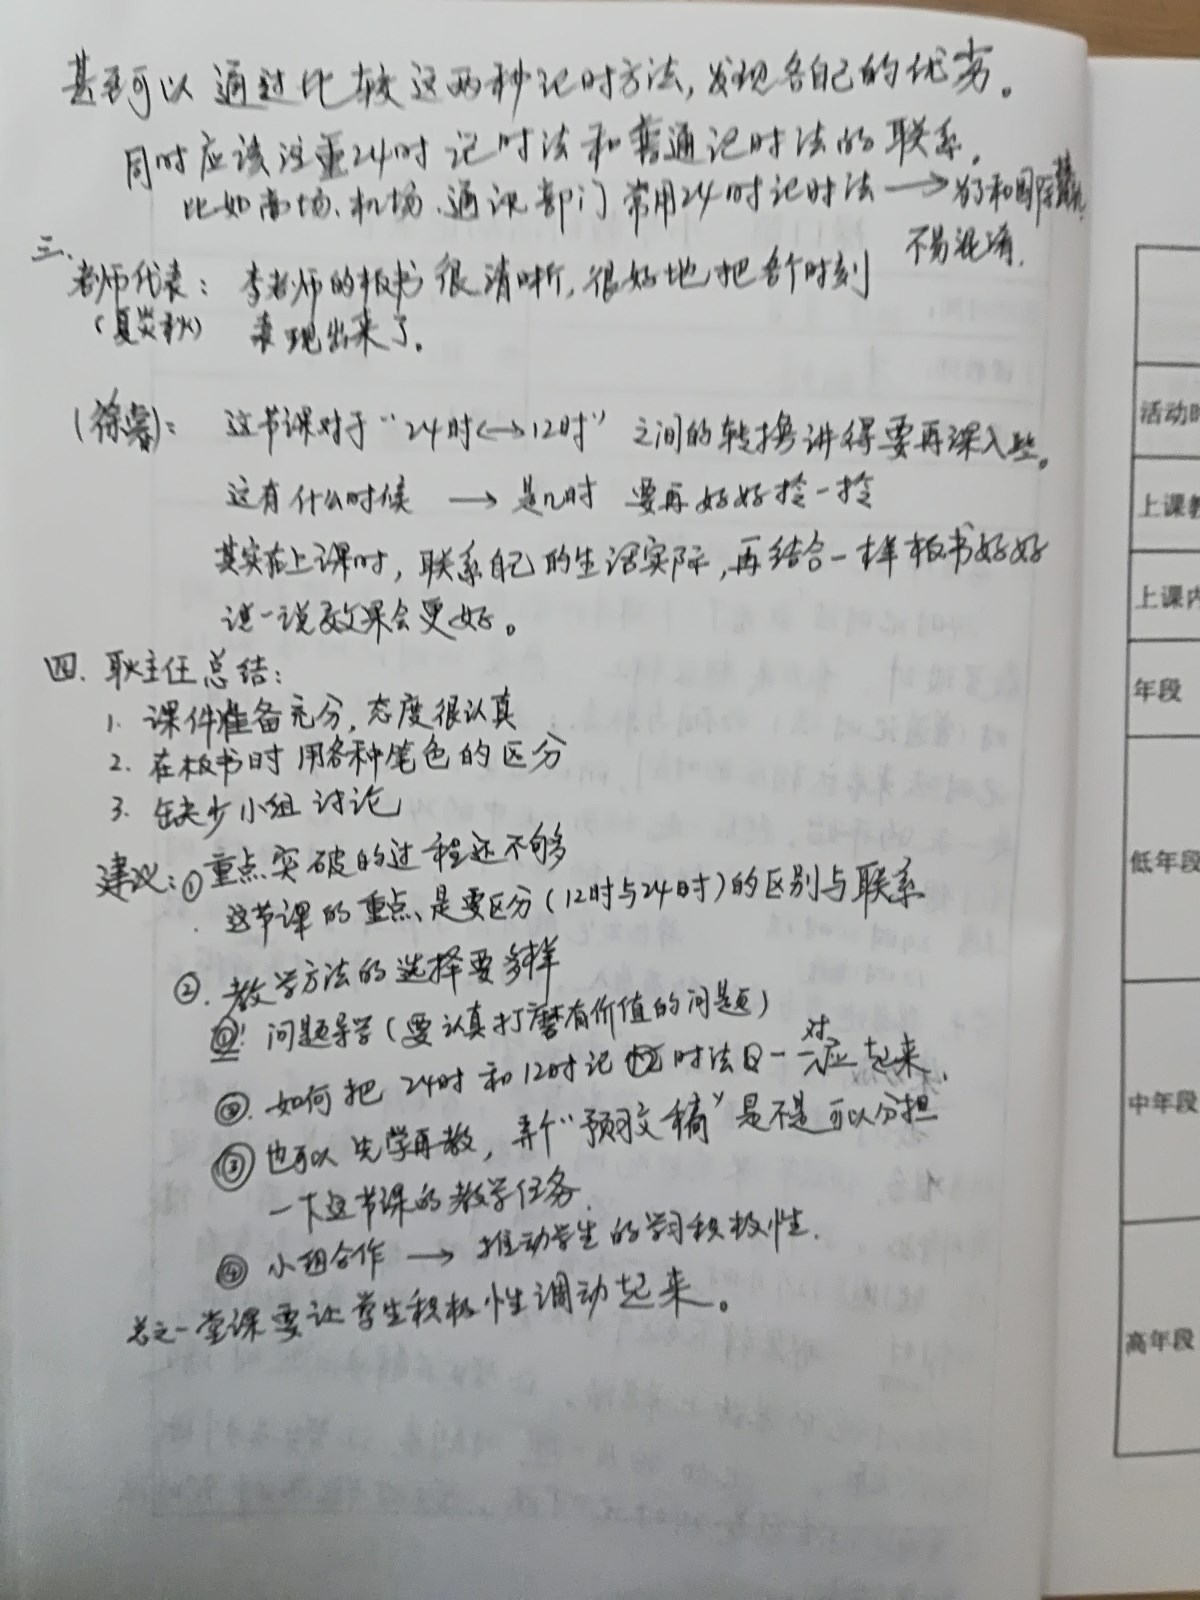 甚至可以通过比较这两种记时方法，发现各自己的优劣。
同时应该注重24时记时法和普通记时法的联系。
比如商场、机场、通讯部门常用24时记时法 → 为了和国际
不易混淆.
三、
老师代表： 李老师的板书很清晰，很好地把各个时刻
表现出来了。
这节课对于“24时↔12时”之间的转换讲得要再深入些。
这有什么时候 → 是几时 要再好好拎一拎
其实在上课时，联系自己的生活实际，再结合一样板书好好
说一说效果会更好。
四. 耿主任总结：
1. 课件准备充分，态度很认真
2. 在板书时用各种笔色的区分
3. 缺少小组讨论
建议：① 重点突破的过程还不够
这节课的重点、是要区分（12时与24时）的区别与联系
②. 教学方法的选择要多样
①! 问题导学（要认真打磨有价值的问题）
②. 如何把24时和12时记时法一一对应起来、
③ 也可以先学再教，弄个“预习文稿”是不是可以分担
一下这节课的教学任务.
④ 小组合作 → 推动学生的学习积极性.
总之一堂课要让学生积极性调动起来。
活动时
上课教
上课内
年段
低年段
中年段
高年段